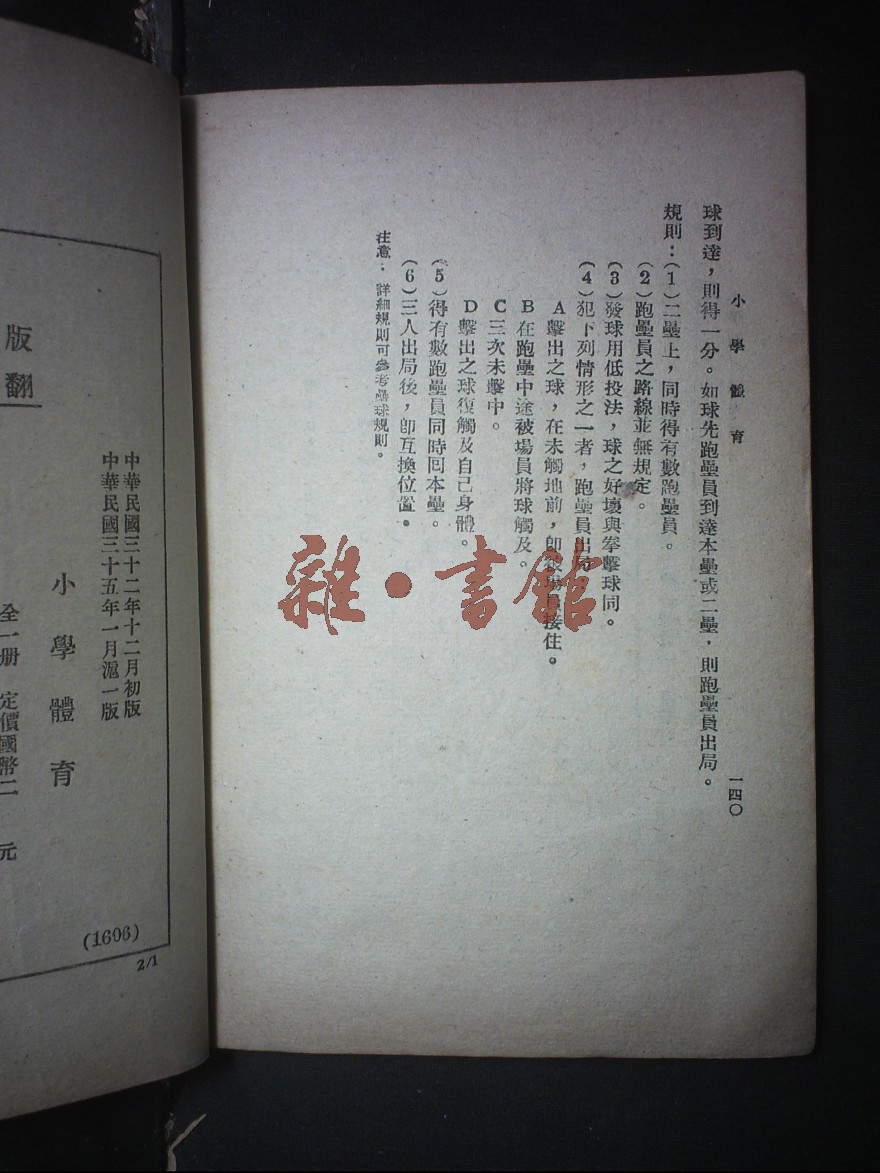 小學體育
一四〇
球到達，則得一分。如球先跑壘員到達本壘或二壘，則跑壘員出局。
規則：(1)二壘上，同時得有數跑壘員。
(2)跑壘員之路線並無規定。
(3)發球用低投法，球之好壞與拳擊球同。
(4)犯下列情形之一者，跑壘員出局。
A 擊出之球，在未觸地前，卽被場員接住。
B 在跑壘中途被場員將球觸及。
C 三次未擊中。
D 擊出之球復觸及自己身體。
(5)得有數跑壘員同時回本壘。
(6)三人出局後，卽互換位置。
注意：詳細規則可參考壘球規則。
雜·書館
中華民國三十二年十二月初版
中華民國三十五年一月滬一版
小學體育
全一册 定價國幣二 元
版
翻
(1606)
2/1